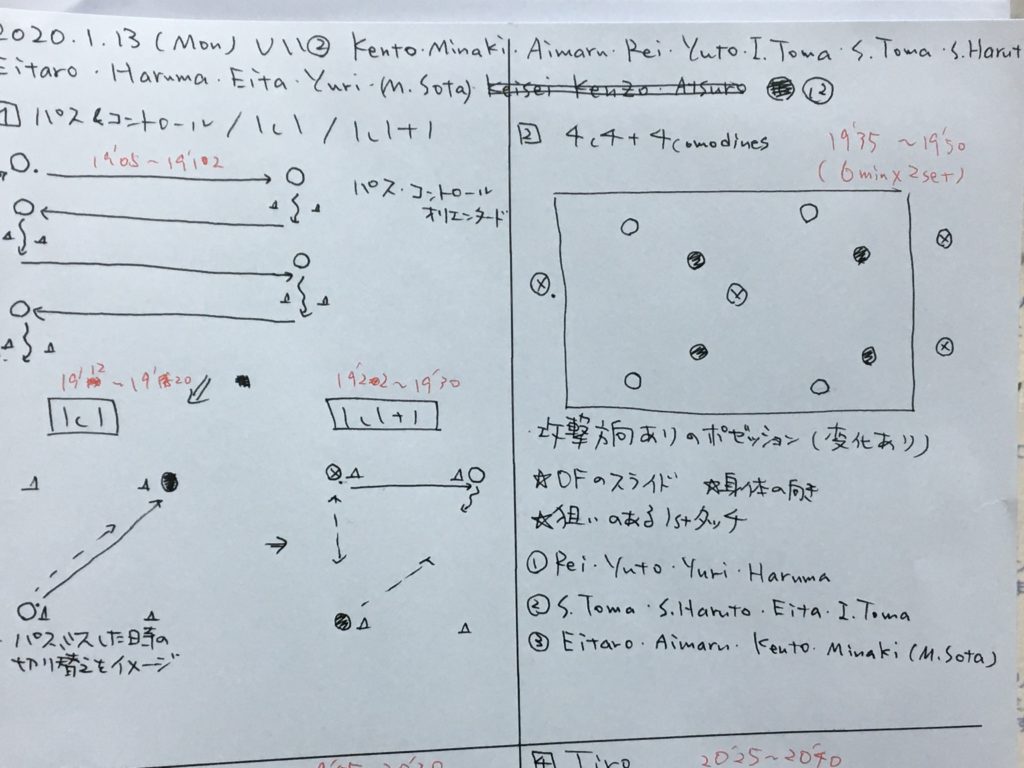 2020.1.13 (Mon) U11② Kento・Minaki・Aimaru・Rei・Yuto・I.Toma・S.Toma・S.Harut
Eitaro・Haruma・Eita・Yuri・(M.Sota) Keisei Kenzo・Atsuro ⑫
1 パス&コントロール/1c1/1c1+1
19'05~19'102
パス・コントロール
オリエンタード
19'12~19'20
1c1
19'202~19'30
1c1+1
パスミスした時の
切り替えをイメージ
2 4c4+4comodines 19'35~19'50
(6min×2set)
・攻撃方向ありのポゼッション(変化あり)
☆DFのスライド ☆身体の向き
☆狙いのある1stタッチ
①Rei・Yuto・Yuri・Haruma
②S.Toma・S.Haruto・Eita・I.Toma
③Eitaro・Aimaru・Kento・Minaki(M.Sota)
4 Tiro 20'25~20'40